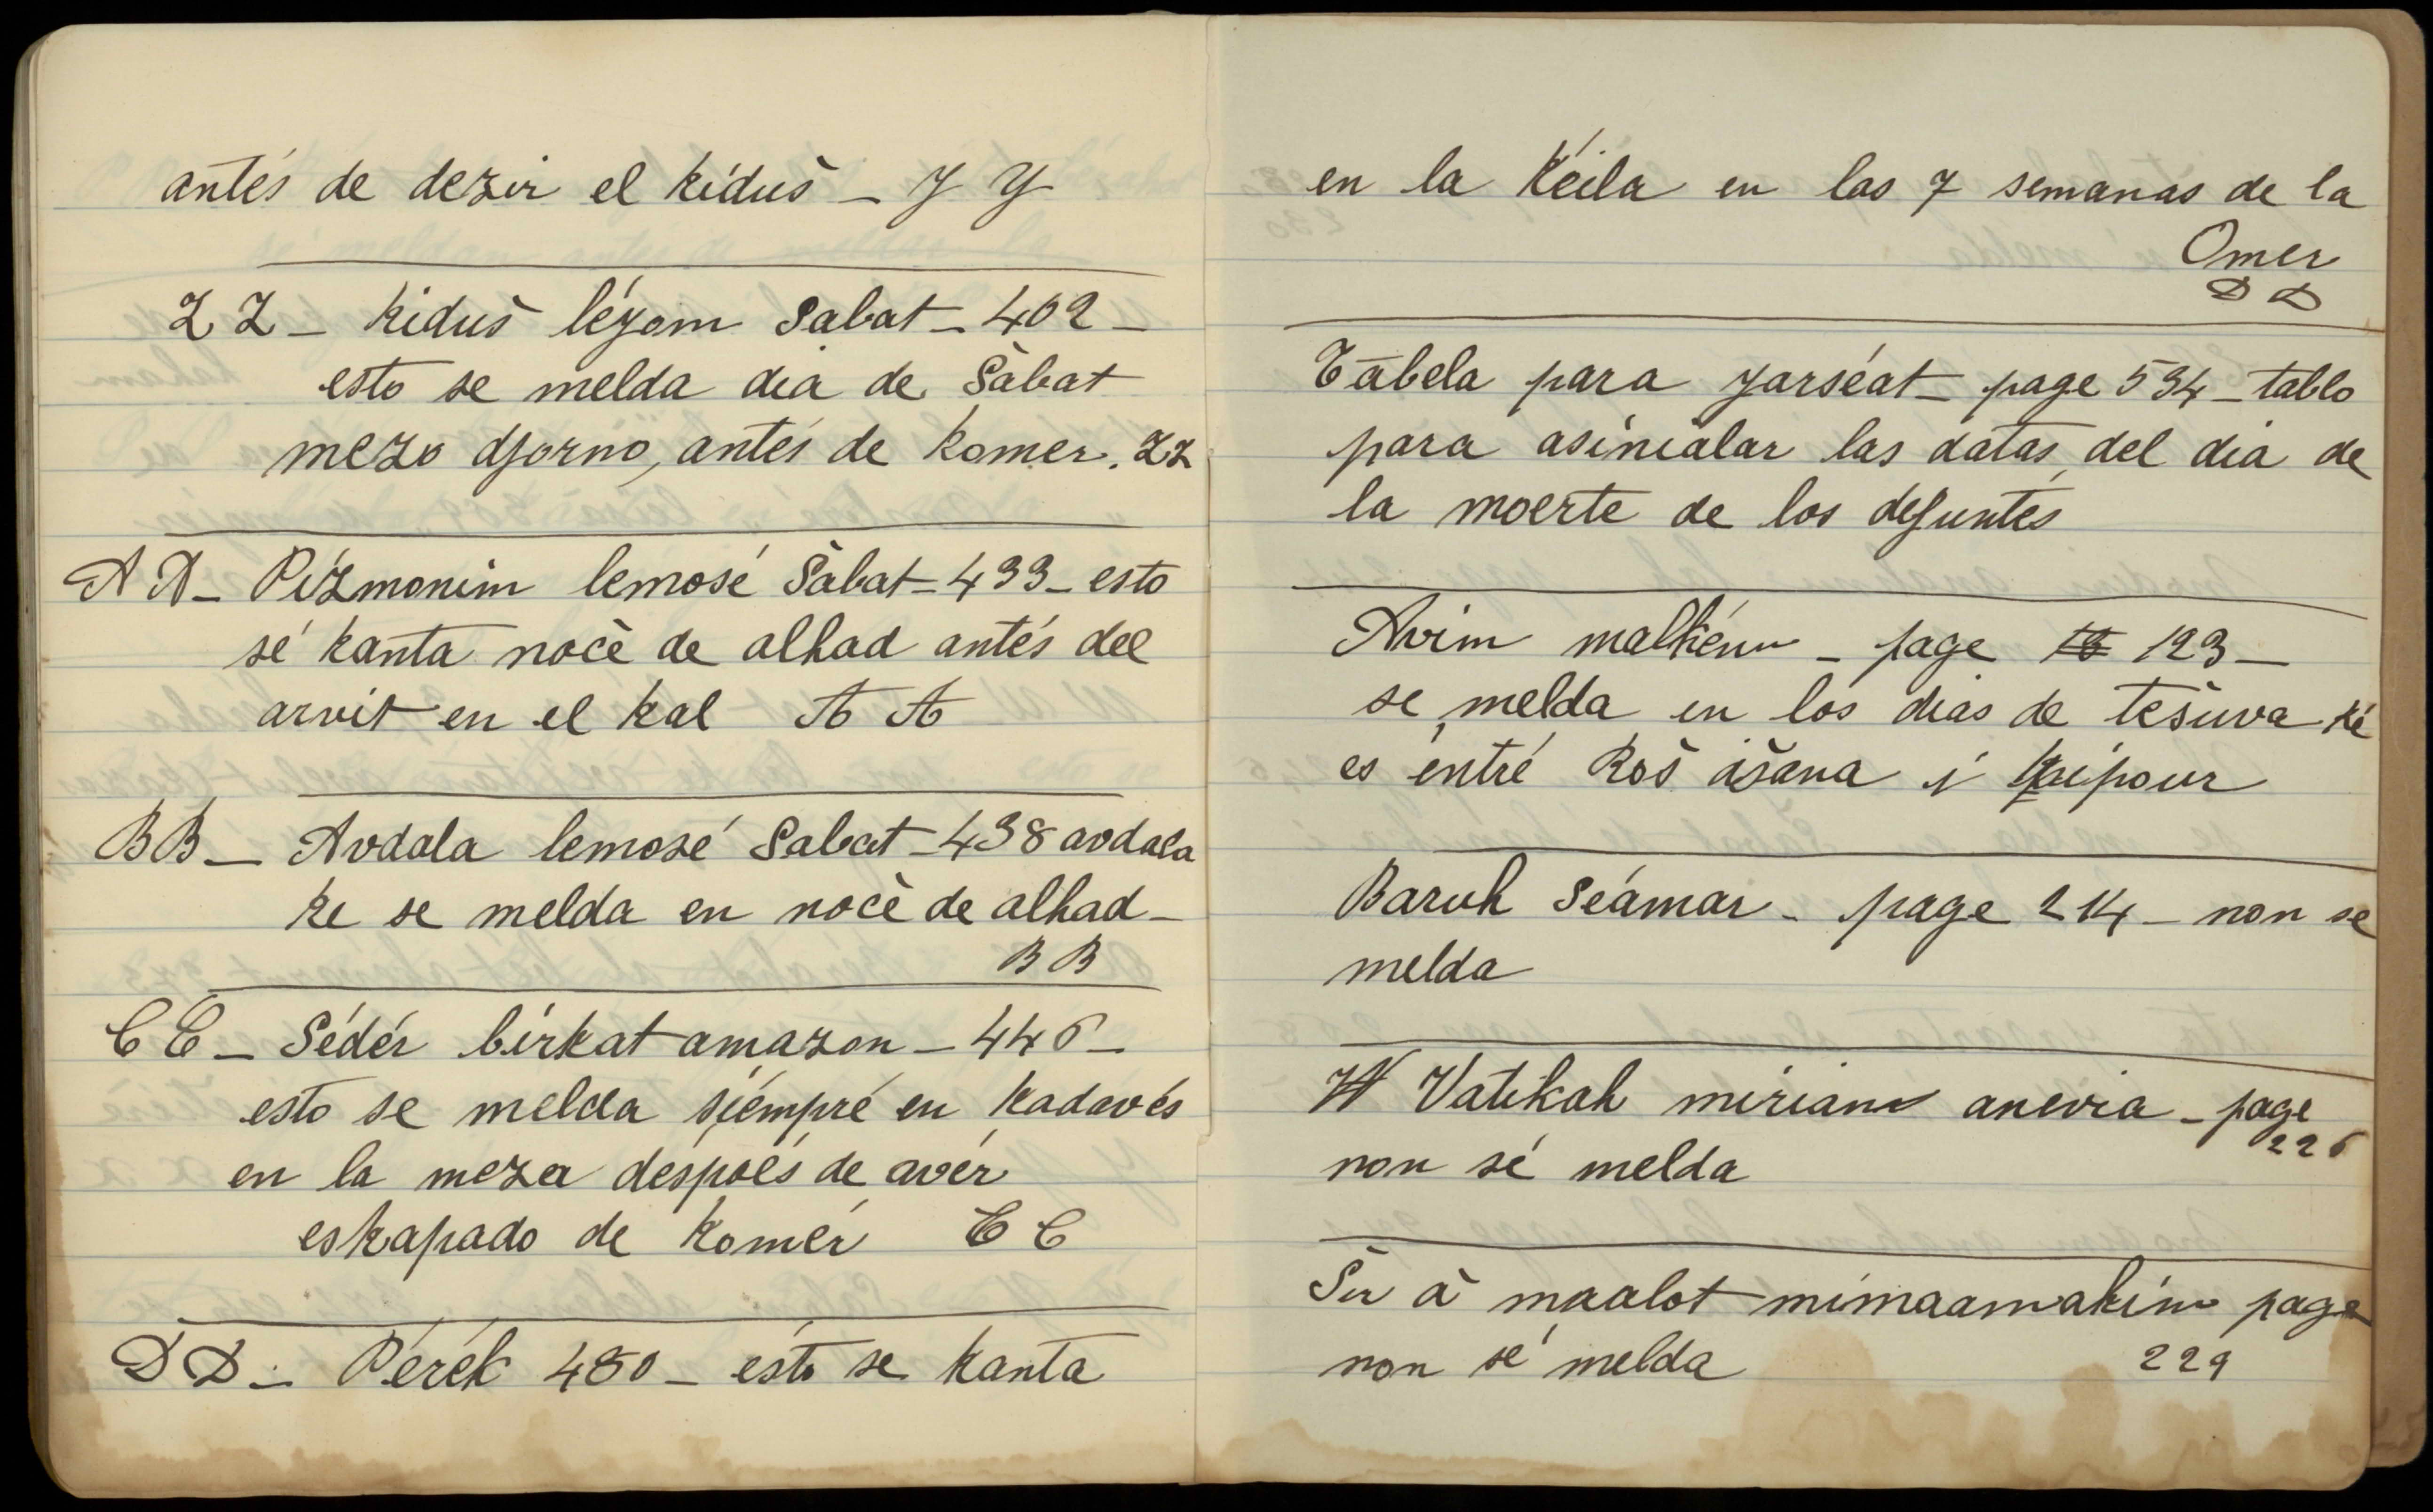 antés de dezir el kiduš _ Y Y
Z Z _ kiduš léyom Šabat _ 402 _
esto se melda dia de Šabat
mezo djorno, antés de komer. ZZ
A A _ Pizmonim lemosé Šabat _ 433 _ esto
sé kanta noćè de alhad antés del
arvit en el kal A A
BB _ Avdala lemosé Šabat _ 438 avdala
ke se melda en noćè de alhad _
B B
C C _ Sédér birkat amazon _ 446 _
esto se melda siémpré en kadavés
en la meza déspoés de avér
eskapado de komér C C
D D _ Pérék 480 _ ésto se kanta
en la Kéila en las 7 semanas de la
Omer
D D
Tabela para yarséat _ page 534 _ tablo
para asinialar las datas del dia de
la moerte de los defuntés
Avim malkénu _ page 123 _
se melda en los dias de tešuva ké
es éntré Roš ašana i kipour
Baruh Séamar _ page 214 _ non se
melda
Vatikah miriam anevia _ page
226
non sé melda
Šir à maalot mimaamakim page
non sé melda 229